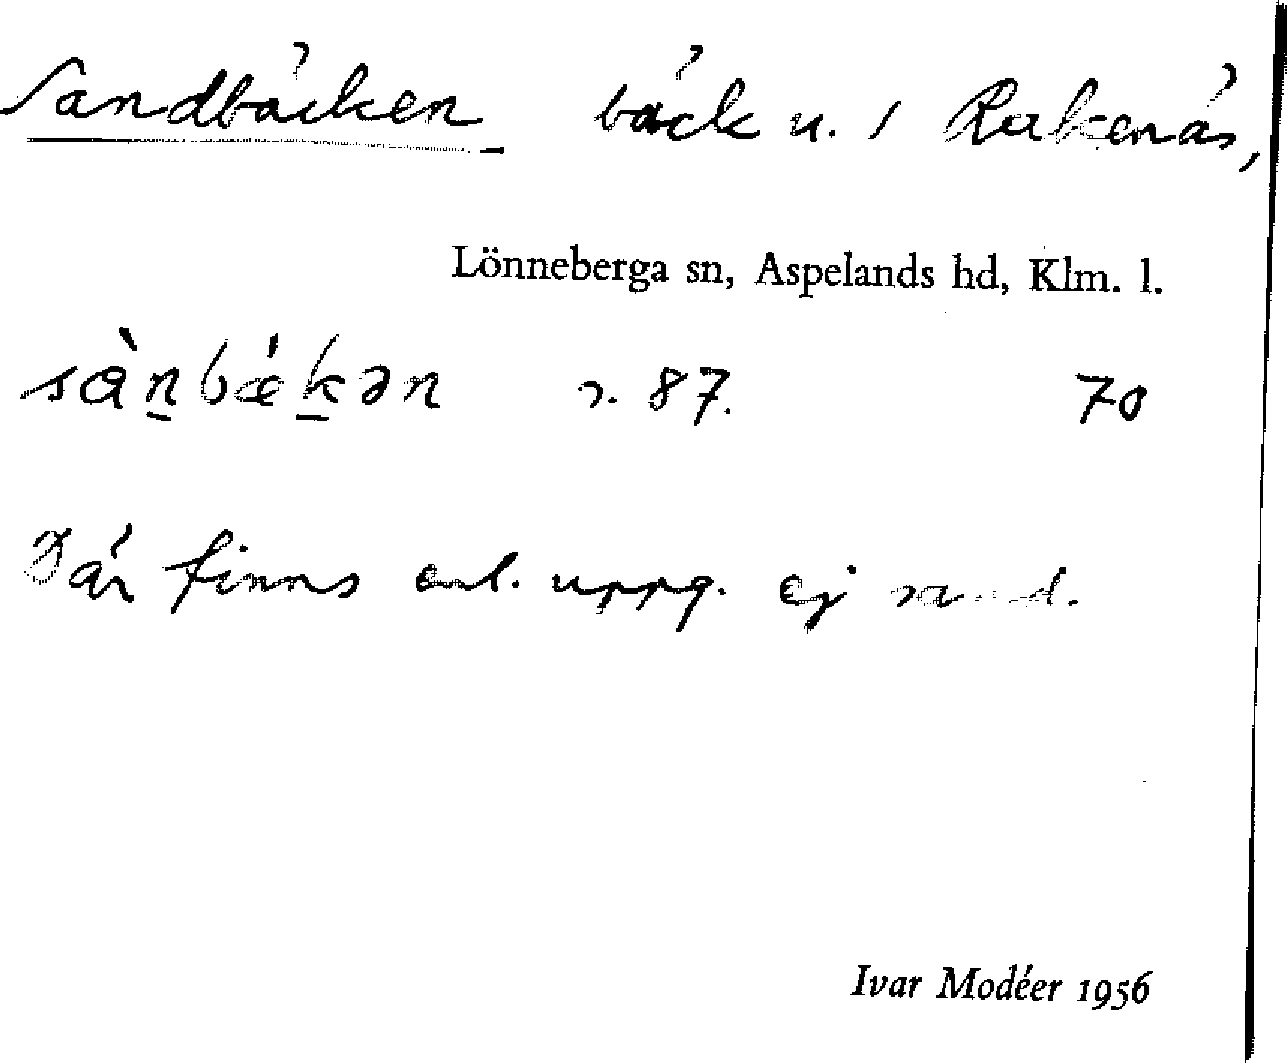 Sandbäcken bäck u. / Rakenäs,
Lönneberga sn, Aspelands hd, Klm. l.
sànbǽkən 87. 70
Där finns enl. uppg. ej sand.
Ivar Modéer 1956